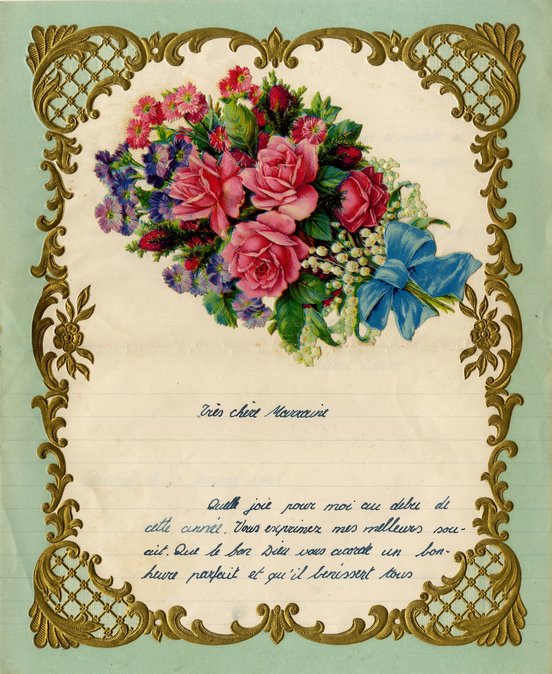 Très chère Marraine
Quelle joie pour moi au debu de
cette année. Vous exprimez mes meilleurs sou-
ait. Que le bon Dieu vous acorde un bon-
heure parfait et qu'il benissert tous